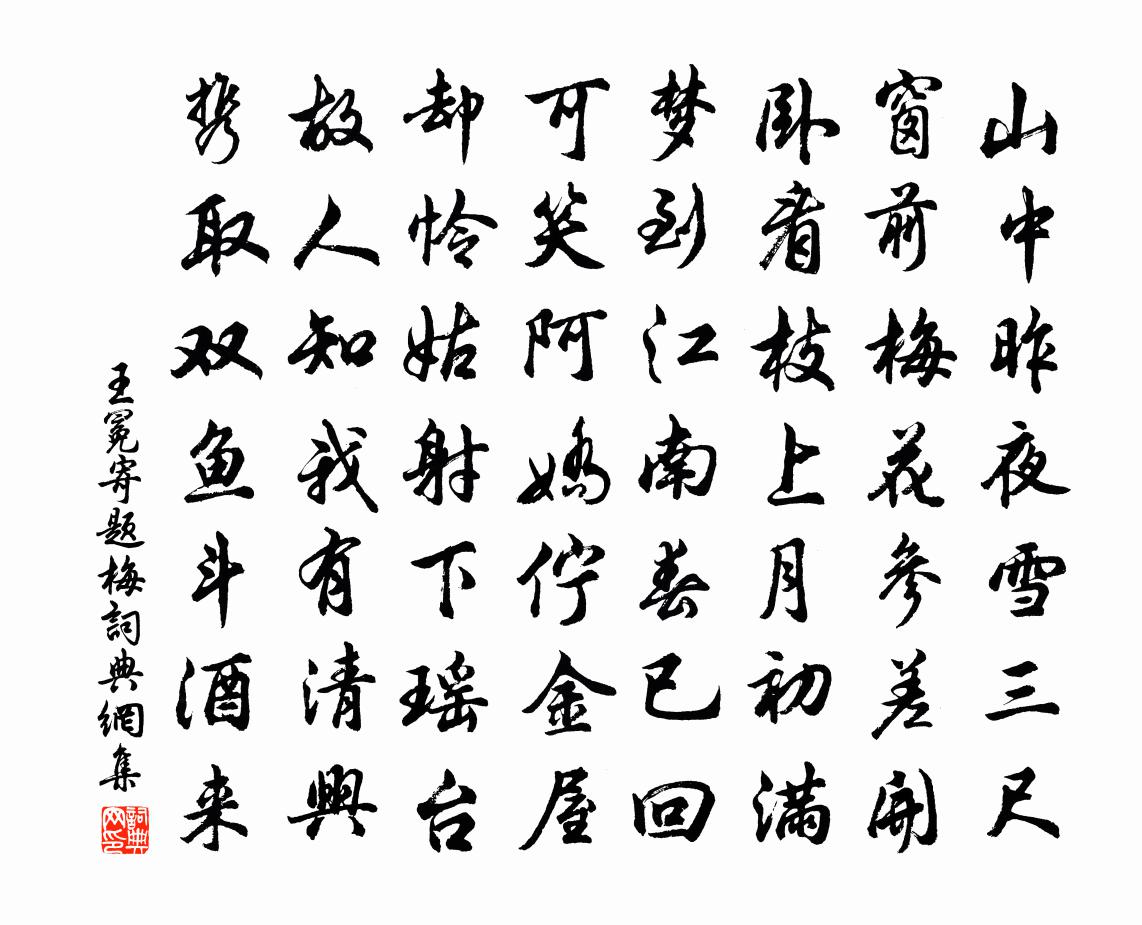 山中昨夜雪三尺
窗前梅花参差开
卧看枝上月初满
梦到江南春已回
可笑阿娇佇金屋
却怜姑射下瑶台
故人知我有清興
携取双鱼斗酒来
王冕寄题梅詞典網集
詞典网印